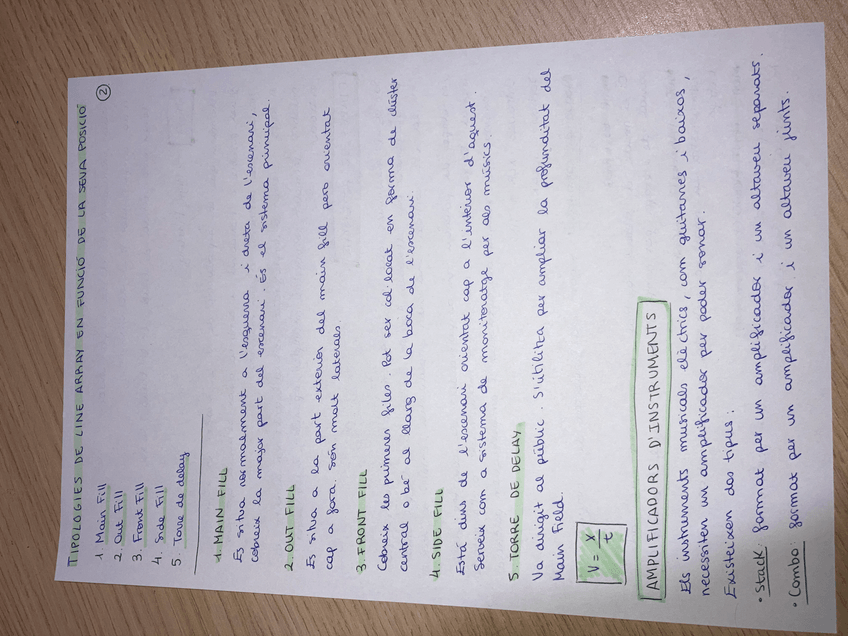 TIPOLOGIES DE LINE ARRAY EN FUNCIÓ DE LA SEVA POSICIÓ
2
1. Main Fill
2. Out Fill
3. Front Fill
4. Side Fill
5. Torre de delay
1. MAIN FILL
Es situa normalment a l'esquerra i dreta de l'escenari,
cobreix la major part del escenari. És el sistema principal.
2. OUT FILL
Es situa a la part exterior del main fill però orientat
cap a fora. Són molt laterals
3. FRONT FILL
Cobreix les primeres files. Pot ser col·locat en forma de clúster
central o bé al llarg de la boca de l'escenari.
4. SIDE FILL
Està dins de l'escenari orientat cap a l'interior d'aquest.
Serveix com a sistema de monitoratge per als músics.
5. TORRE DE DELAY
Va dirigit al públic. S'utilitza per ampliar la profunditat del
Main Field.
V = x/t
AMPLIFICADORS D'INSTRUMENTS
Els instruments musicals elèctrics, com guitarres i baixos,
necessiten un amplificador per poder sonar.
Existeixen dos tipus:
• Stack format per un amplificador i un altaveu separats.
• Combo: format per un amplificador i un altaveu junts.